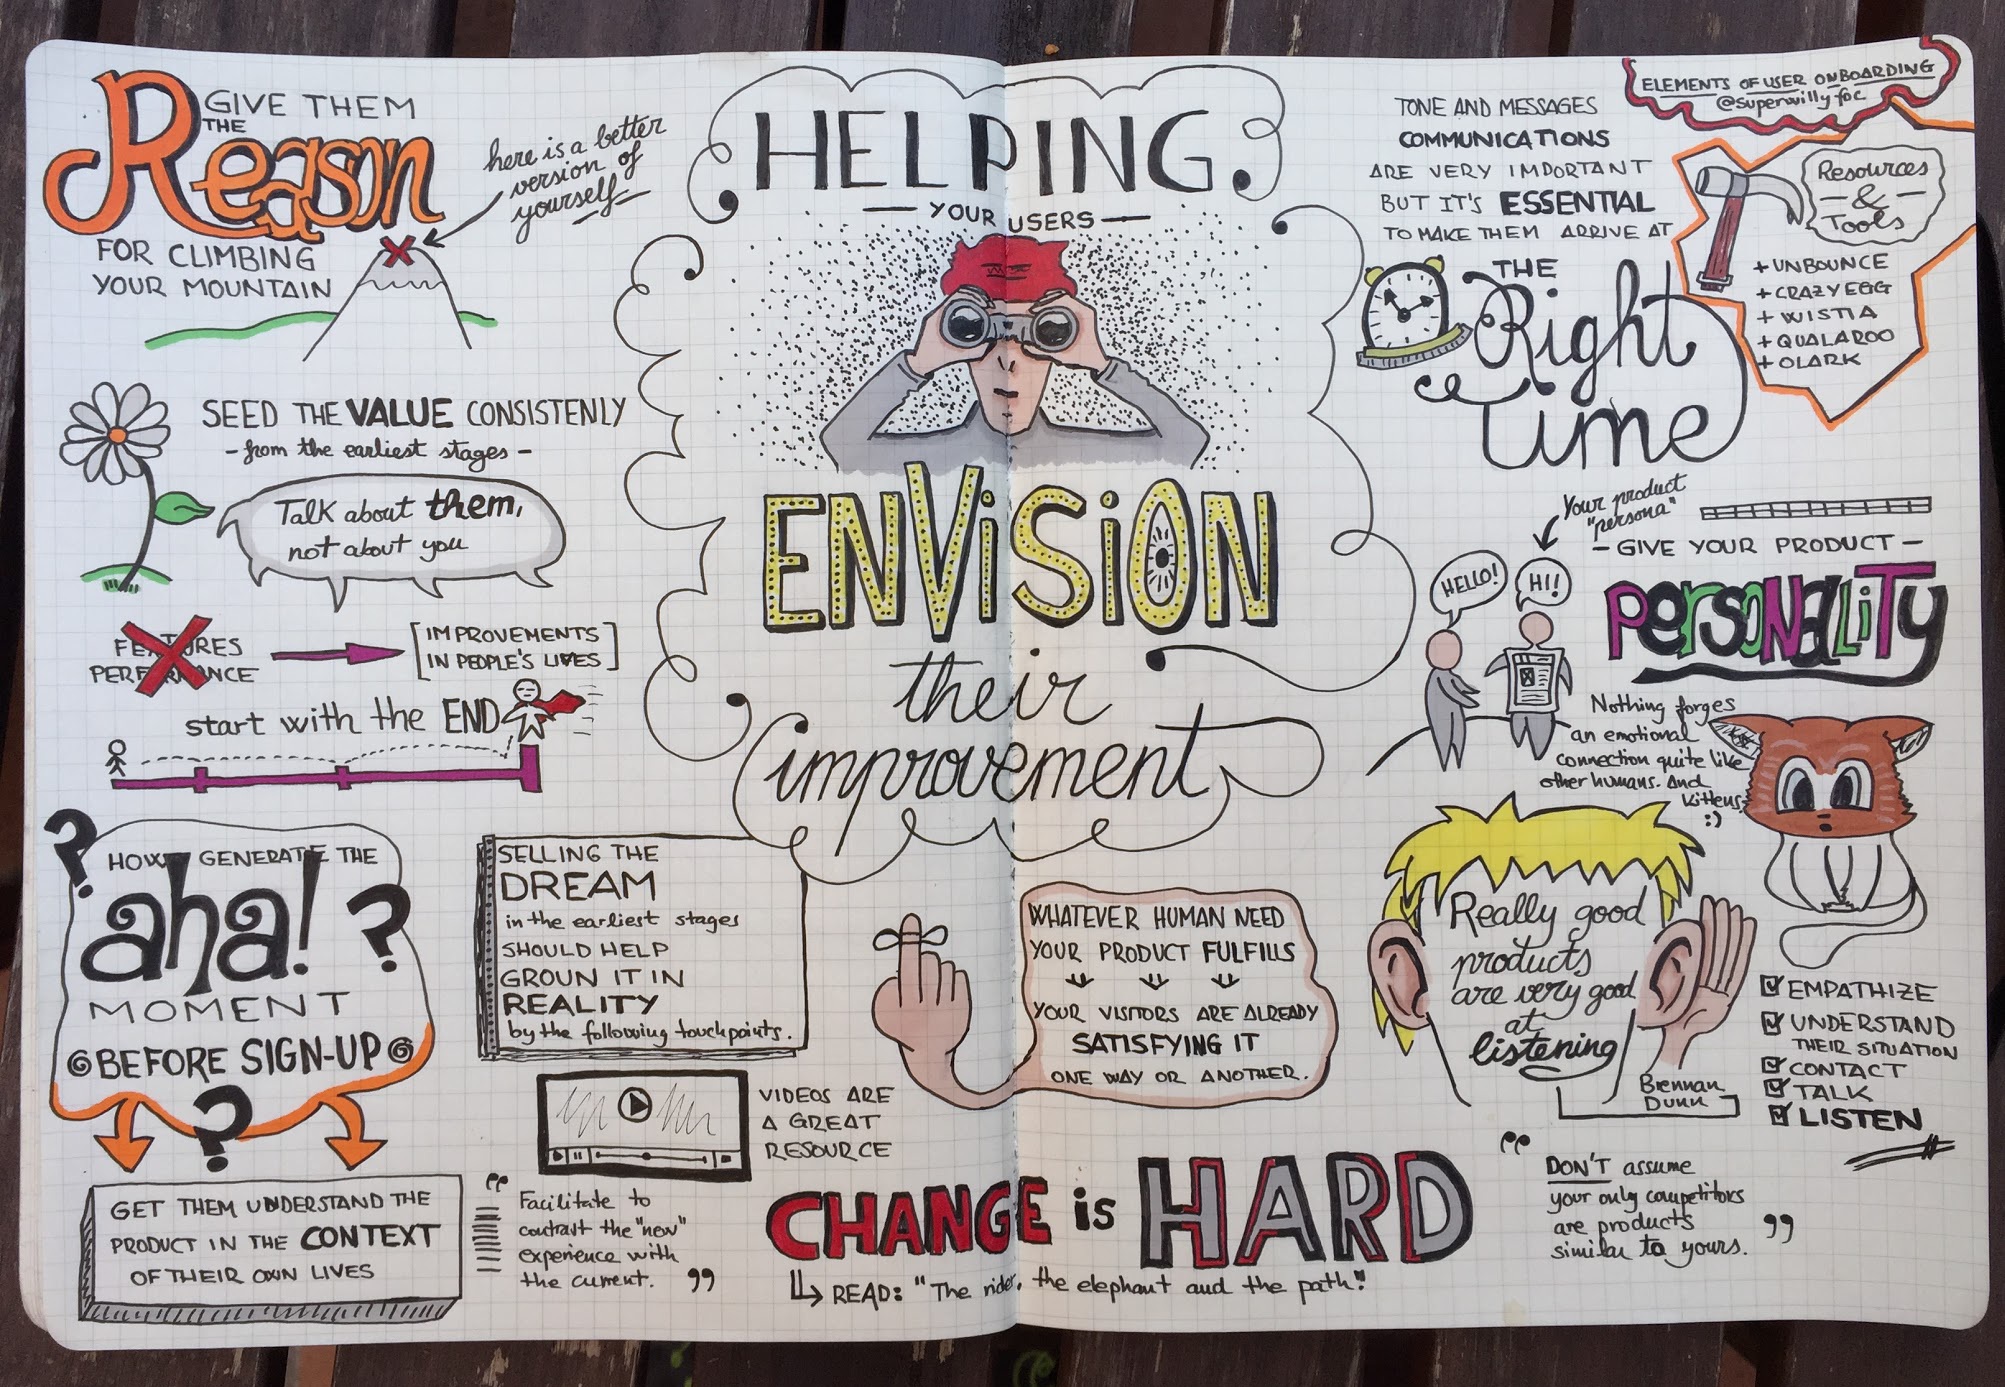 GIVE THEM
THE
Reason
FOR CLIMBING
YOUR MOUNTAIN
here is a better
version of
yourself
SEED THE VALUE CONSISTENLY
- from the earliest stages -
Talk about them,
not about you
FEATURES
PERFORMANCE
IMPROVEMENTS
IN PEOPLE'S LIVES
start with the END
HOW GENERATE THE
aha!
MOMENT
BEFORE SIGN-UP
?
?
?
GET THEM UNDERSTAND THE
PRODUCT IN THE CONTEXT
OF THEIR OWN LIVES
SELLING THE
DREAM
in the earliest stages
SHOULD HELP
GROUN IT IN
REALITY
by the following touchpoints.
VIDEOS ARE
A GREAT
RESOURCE
" Facilitate to
contrast the "new"
experience with
the current. "
HELPING
— YOUR USERS —
ENViSiON
their
improvement
WHATEVER HUMAN NEED
YOUR PRODUCT FULFILLS
YOUR VISITORS ARE ALREADY
SATISFYING IT
ONE WAY OR ANOTHER.
CHANGE is HARD
READ: "The rider, the elephant and the path!"
TONE AND MESSAGES
COMMUNICATIONS
ARE VERY IMPORTANT
BUT IT'S ESSENTIAL
TO MAKE THEM ARRIVE AT
THE
Right
Time
ELEMENTS OF USER ONBOARDING
@superwillyfoc
Resources
- & -
Tools
+ UNBOUNCE
+ CRAZY EGG
+ WISTIA
+ QUALAROO
+ OLARK
Your product
"persona"
- GIVE YOUR PRODUCT -
PERSONALiTY
HELLO!
HI!
Nothing forges
an emotional
connection quite like
other humans. And
kittens.
:)
Really good
products
are very good
at
listening
Brennan
Dunn
EMPATHIZE
UNDERSTAND
THEIR SITUATION
CONTACT
TALK
LISTEN
" DON'T assume
your only competitors
are products
similar to yours. "